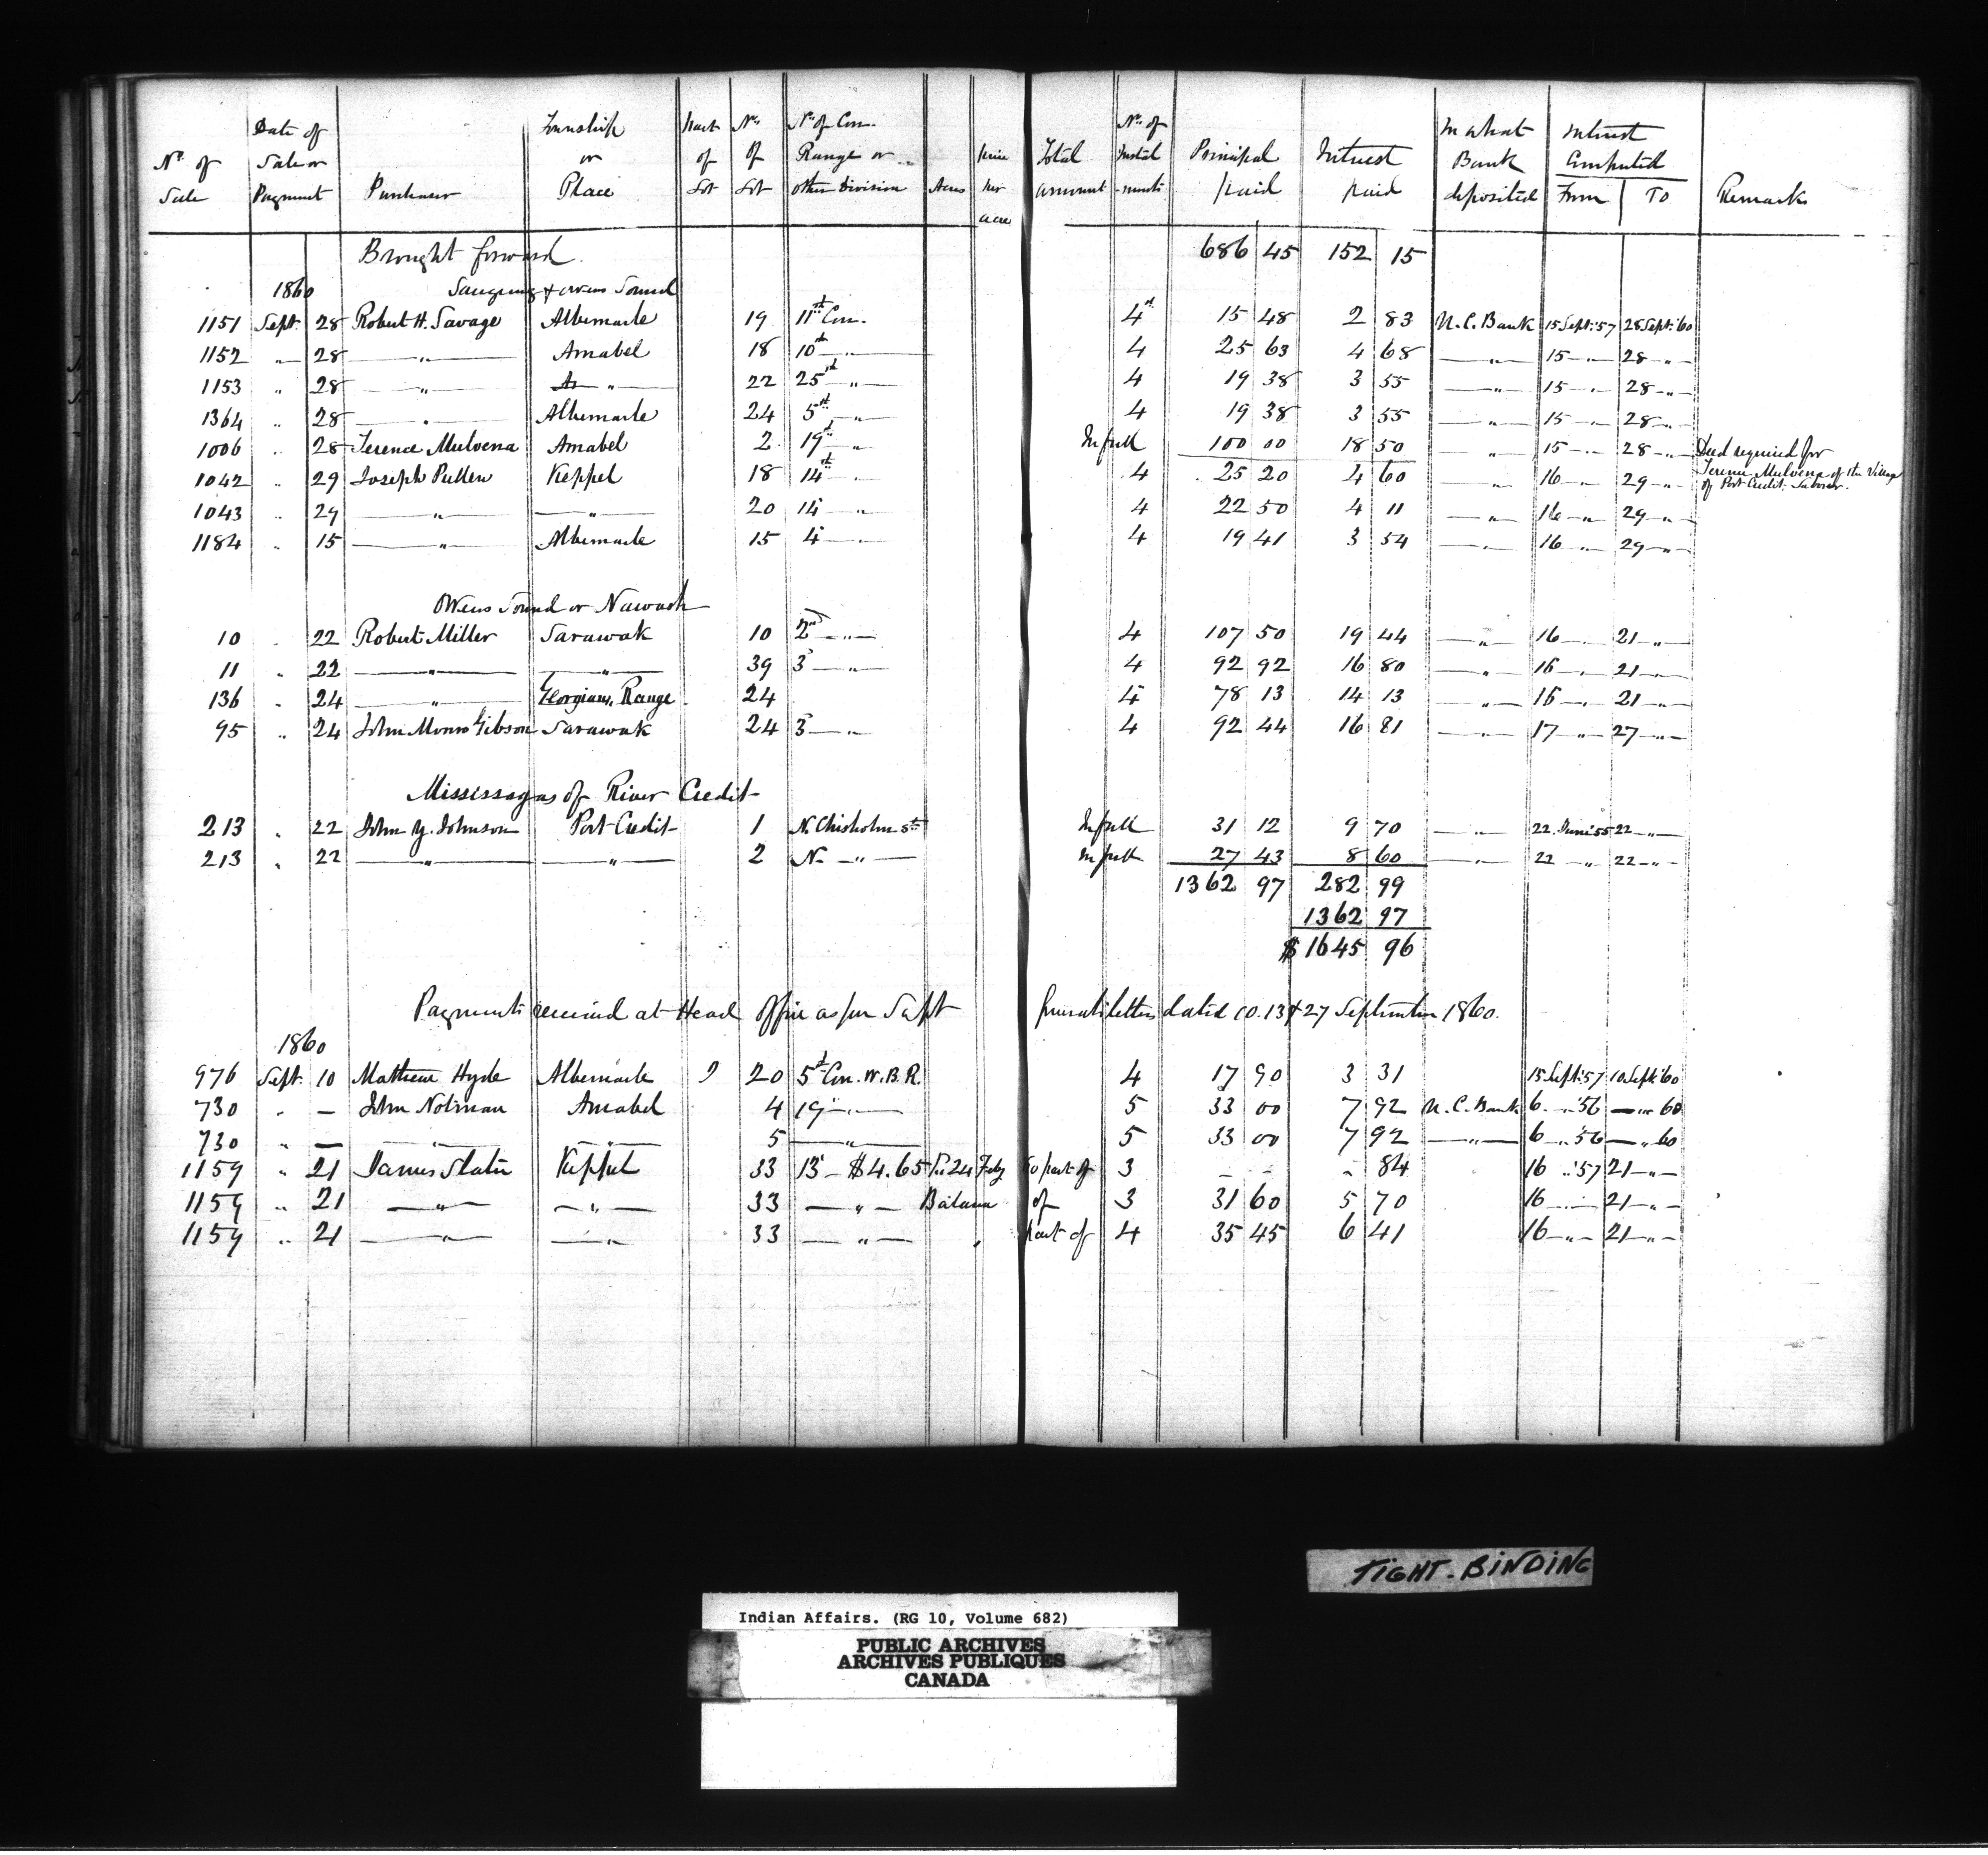 No. of Sale | Date of Sale or Payment | Purchaser | Township or Place | Part of Lot | No. of Lot | No. of Con. Range or other division | Acres | Price per acre | Total amount | No. of Instalments | Principal paid | Interest paid | In what Bank deposited | Interest Computed From | To | Remarks
Brought forward 686 45 152 15
1860 Saugeeng & Owens Sound
1151 Sept. 28 Robert H. Savage Albemarle 19 11th Con. 4 15 48 2 83 U.C. Bank 15 Sept. '57 28 Sept. '60
1152 " 28 " Amabel 18 10th " 4 25 63 4 68 " 15 " 28 "
1153 " 28 " " 22 25th " 4 19 38 3 55 " 15 " 28 "
1364 " 28 " Albemarle 24 5th " 4 19 38 3 55 " 15 " 28 "
1006 " 28 Terence Mulvena Amabel 2 19th " In full 100 00 18 50 " 15 " 28 " Deed required for
1042 " 29 Joseph Pullen Keppel 18 14th " 4 25 20 4 60 " 16 " 29 " Terence Mulvena of the Village of Port Credit. Laborer.
1043 " 29 " " 20 14 " 4 22 50 4 11 " 16 " 29 "
1184 " 15 " Albemarle 15 4 " 4 19 41 3 54 " 16 " 29 "
Owens Sound or Nawash
10 " 22 Robert Miller Sarawak 10 2nd " 4 107 50 19 44 " 16 " 21 "
11 " 22 " " 39 3 " 4 92 92 16 80 " 16 " 21 "
136 " 24 " Georgian Range 24 4 78 13 14 13 " 16 " 21 "
95 " 24 John Monro Gibson Sarawak 24 3 " 4 92 44 16 81 " 17 " 27 "
Mississagas of River Credit
213 " 22 John Y. Johnson Port Credit 1 N. Chisholm St. In full 31 12 9 70 " 22 June '55 22 "
213 " 22 " " 2 N. " In full 27 43 8 60 " 22 " 22 "
1362 97 282 99
1362 97
$ 1645 96
Payments received at Head Office as per Supt General's letters dated 10. 13 & 27 September 1860.
1860
976 Sept. 10 Mathew Hyde Albemarle 20 5th Con. W.B.R. 4 17 90 3 31 15 Sept. '57 10 Sept. '60
730 " — John Notman Amabel 4 19 " 5 33 00 7 92 U.C. Bank 6 " '56 — " 60
730 " — " " 5 " 5 33 00 7 92 " 6 " '56 — " 60
1159 " 21 James Slater Keppel 33 13 - $4.65 Pr. 24 Feby to part of 3 - - - 84 16 " '57 21 "
1159 " 21 " " 33 " Balance of 3 31 60 5 70 16 " 21 "
1159 " 21 " " 33 " part of 4 35 45 6 41 16 " 21 "
TIGHT. BINDING
Indian Affairs. (RG 10, Volume 682)
PUBLIC ARCHIVES
ARCHIVES PUBLIQUES
CANADA